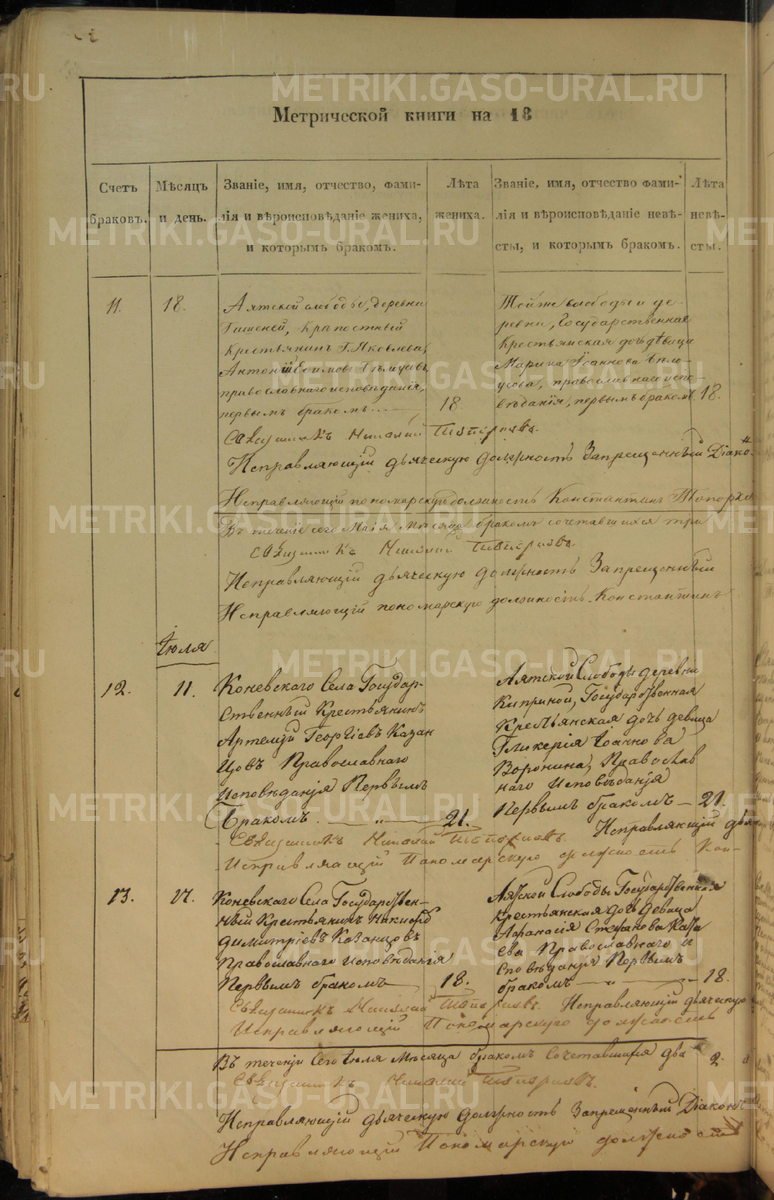 METRIKI.GASO-URAL.RU
Метрической книги на 18
Счетъ браковъ.
Мѣсяцъ и день.
Званіе, имя, отчество, фами-
лія и вѣроисповѣданіе жениха,
и которымъ бракомъ.
Лѣта жениха.
Званіе, имя, отчество фами-
лія и вѣроисповѣданіе невѣ-
сты, и которымъ бракомъ.
Лѣта невѣ-
сты.
11.
18.
Аятской слободы, деревни
крѣпостный
крестьянинъ Г. Яковлева,
Антоній
православнаго исповѣданія,
первымъ бракомъ
18.
Той же слободы и де-
ревни, Государственная
Крестьянская дочь дѣвица
Марина Іоаннова
православнаго испо-
вѣданія, первымъ бракомъ
18.
Священникъ Николай Топорковъ.
Исправляющій дьяческую должность Запрещенный Діако
Исправляющій пономарскую должность Константинъ Топорко
Въ теченіе сего Мая Мѣсяца бракомъ сочетавшихся три
Священникъ Николай Топорковъ
Исправляющій дьяческую должность Запрещенный
Исправляющій пономарскую должность Константинъ
Іюля
12.
11.
Коневскаго Села Государ-
ственный Крестьянинъ
Артемій Георгіевъ Казан
цовъ Православнаго
исповѣданія Первымъ
Бракомъ.
21.
Аятской Слободы деревни
Киприной, Государственная
Крестьянская дочь девица
Гликерія Іоаннова
Воронина, Православ
наго Исповѣданія
Первымъ бракомъ
21.
Священникъ Николай Топорковъ. Исправляющій дья
Исправляющій Пономарскую должность Кон-
13.
17.
Коневскаго Села Государствен-
ный Крестьянинъ Никифор
Димитріевъ Казанцовъ
Православнаго Исповѣданія
Первымъ бракомъ
18.
Аятской Слободы Государственная
крестьянская дочь девица
Афанасія Стефанова
Православнаго и
споведания Первымъ
бракомъ
18.
Священникъ Николай Топорковъ. Исправляющій дьяческую
Исправляющій Пономарскую должность
Въ теченіи Сего Іюля Месяца бракомъ Сочетавшихся два 2
Священникъ Николай Топорковъ.
Исправляющій дьяческую должность Запрещенный Діаконъ
Исправляющій Пономарскую должность